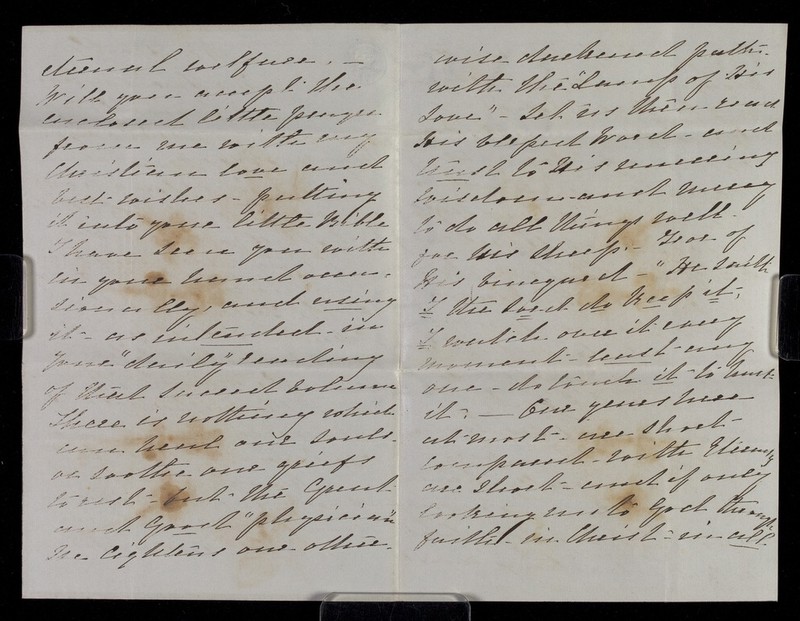 eternal welfare. —
Will you accept the
enclosed little prayer
from me with my
Christian love and
best wishes - putting
it into your little Bible
I have seen you with
in your hand occa-
sionally, and using
it - as intended - in
your "daily" reading
of that Sacred volume
There is nothing which
can heal our souls -
or soothe our griefs
to rest - but the Great
and Good "physician"
He lightens our other-
wise darkened path -
with the "Lamp of His
Love" - Let us then read
His blessed Word - and
trust to His unerring
Wisdom and mercy
to do all things well -
for His sheep -
His vineyard - "He saith
I the Lord do keep it,
I watch over it every
moment - least any
one - do touch it to hurt
it". — Our years here
at most - are short -
compared - with Eternity
are short - and if only
looking up to God through
faith - in Christ - in all